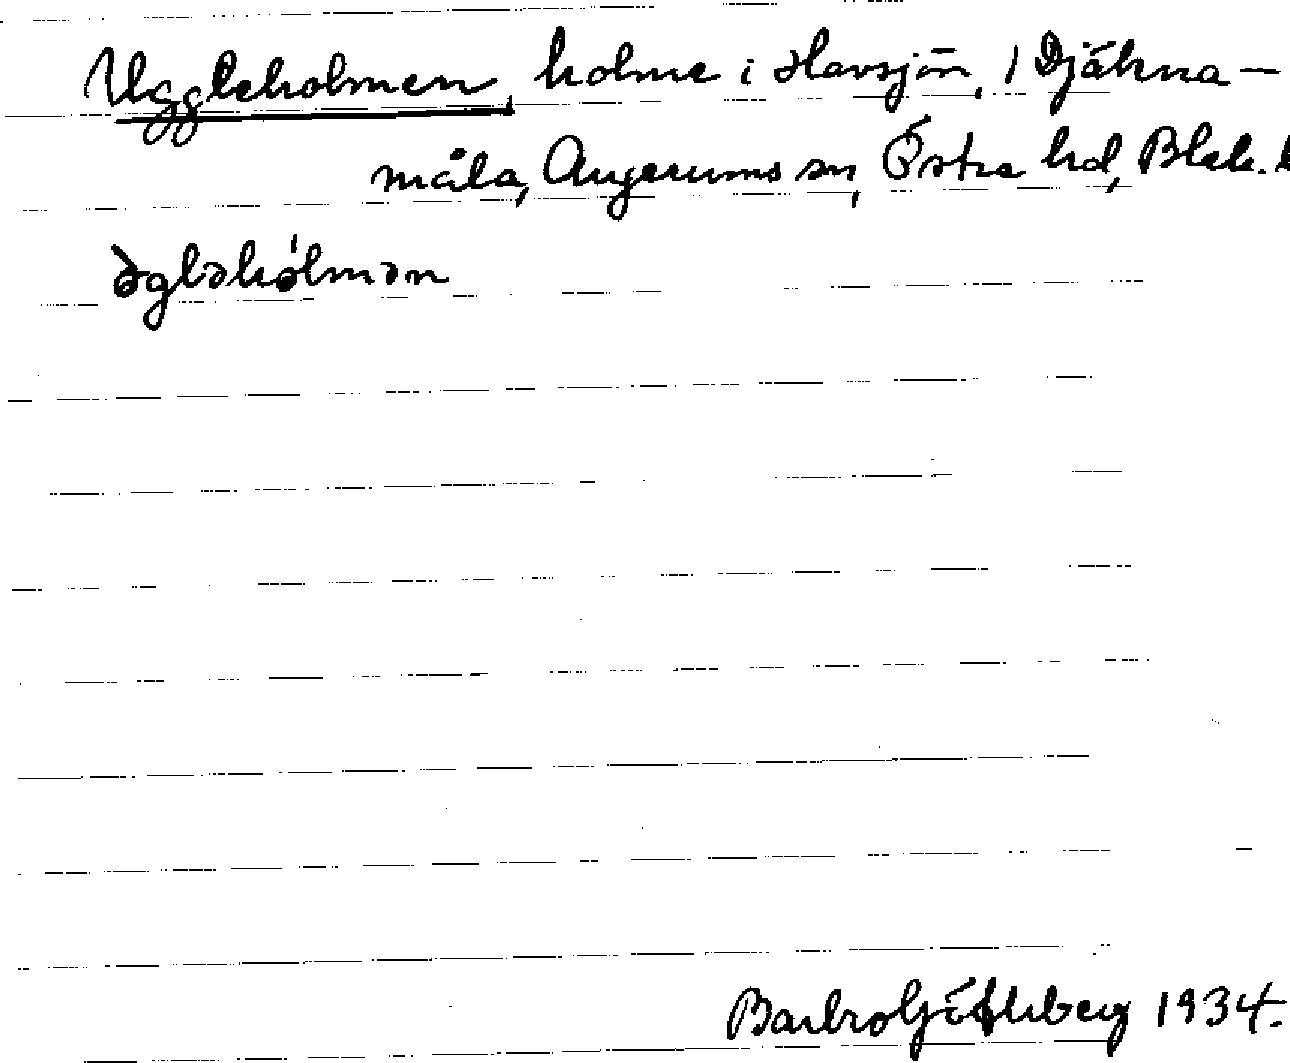 Uggleholmen, holme i Havsjön, i Djäkna-
måla, Augerums sn, Östra hd, Blek.
əgləhólmən
Barbro 1934.